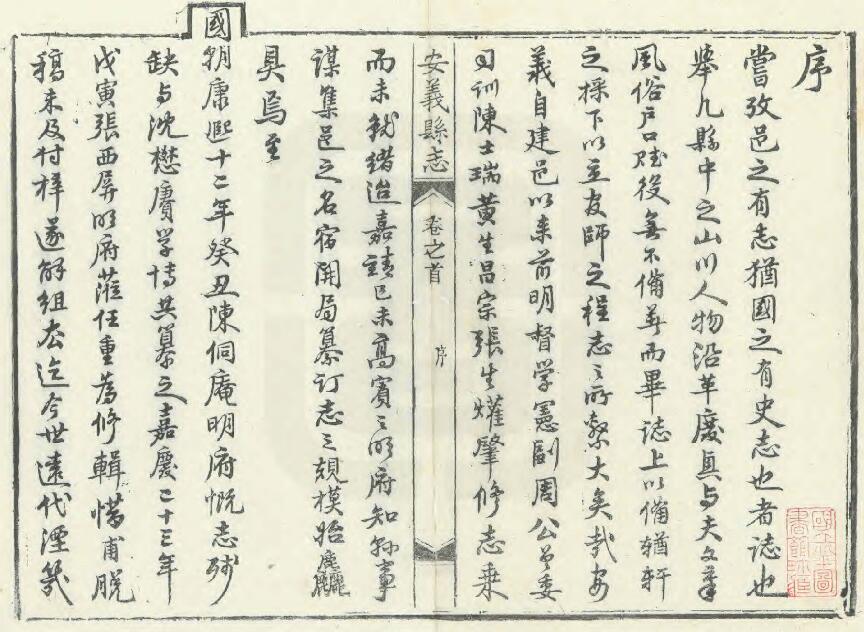 序
嘗攷邑之有志猶國之有史志也者誌也
舉凡縣中之山川人物沿革廢真与夫文筆
風俗戶口賦役無不備算而畢誌上以備輶軒
之採下以立友師之程志之所繫大矣哉安
義自建邑以來前明督學憲副周公曾委
司訓陳士瑞黃生昌宗張生耀肇修志乗
安義縣志
卷之首
序
而未就緒迨嘉靖己未高賓之明府知縣事
謀集邑之名宿開局纂訂志之規模始廳
具焉至
國朝康熙十二年癸丑陳侗庵明府慨志殘
缺与沈懋賡學博共纂之嘉慶二十三年
戊寅張西屏明府蒞任重為修輯惜甫脫
稿未及付梓遂解組去迄今世遠代湮幾